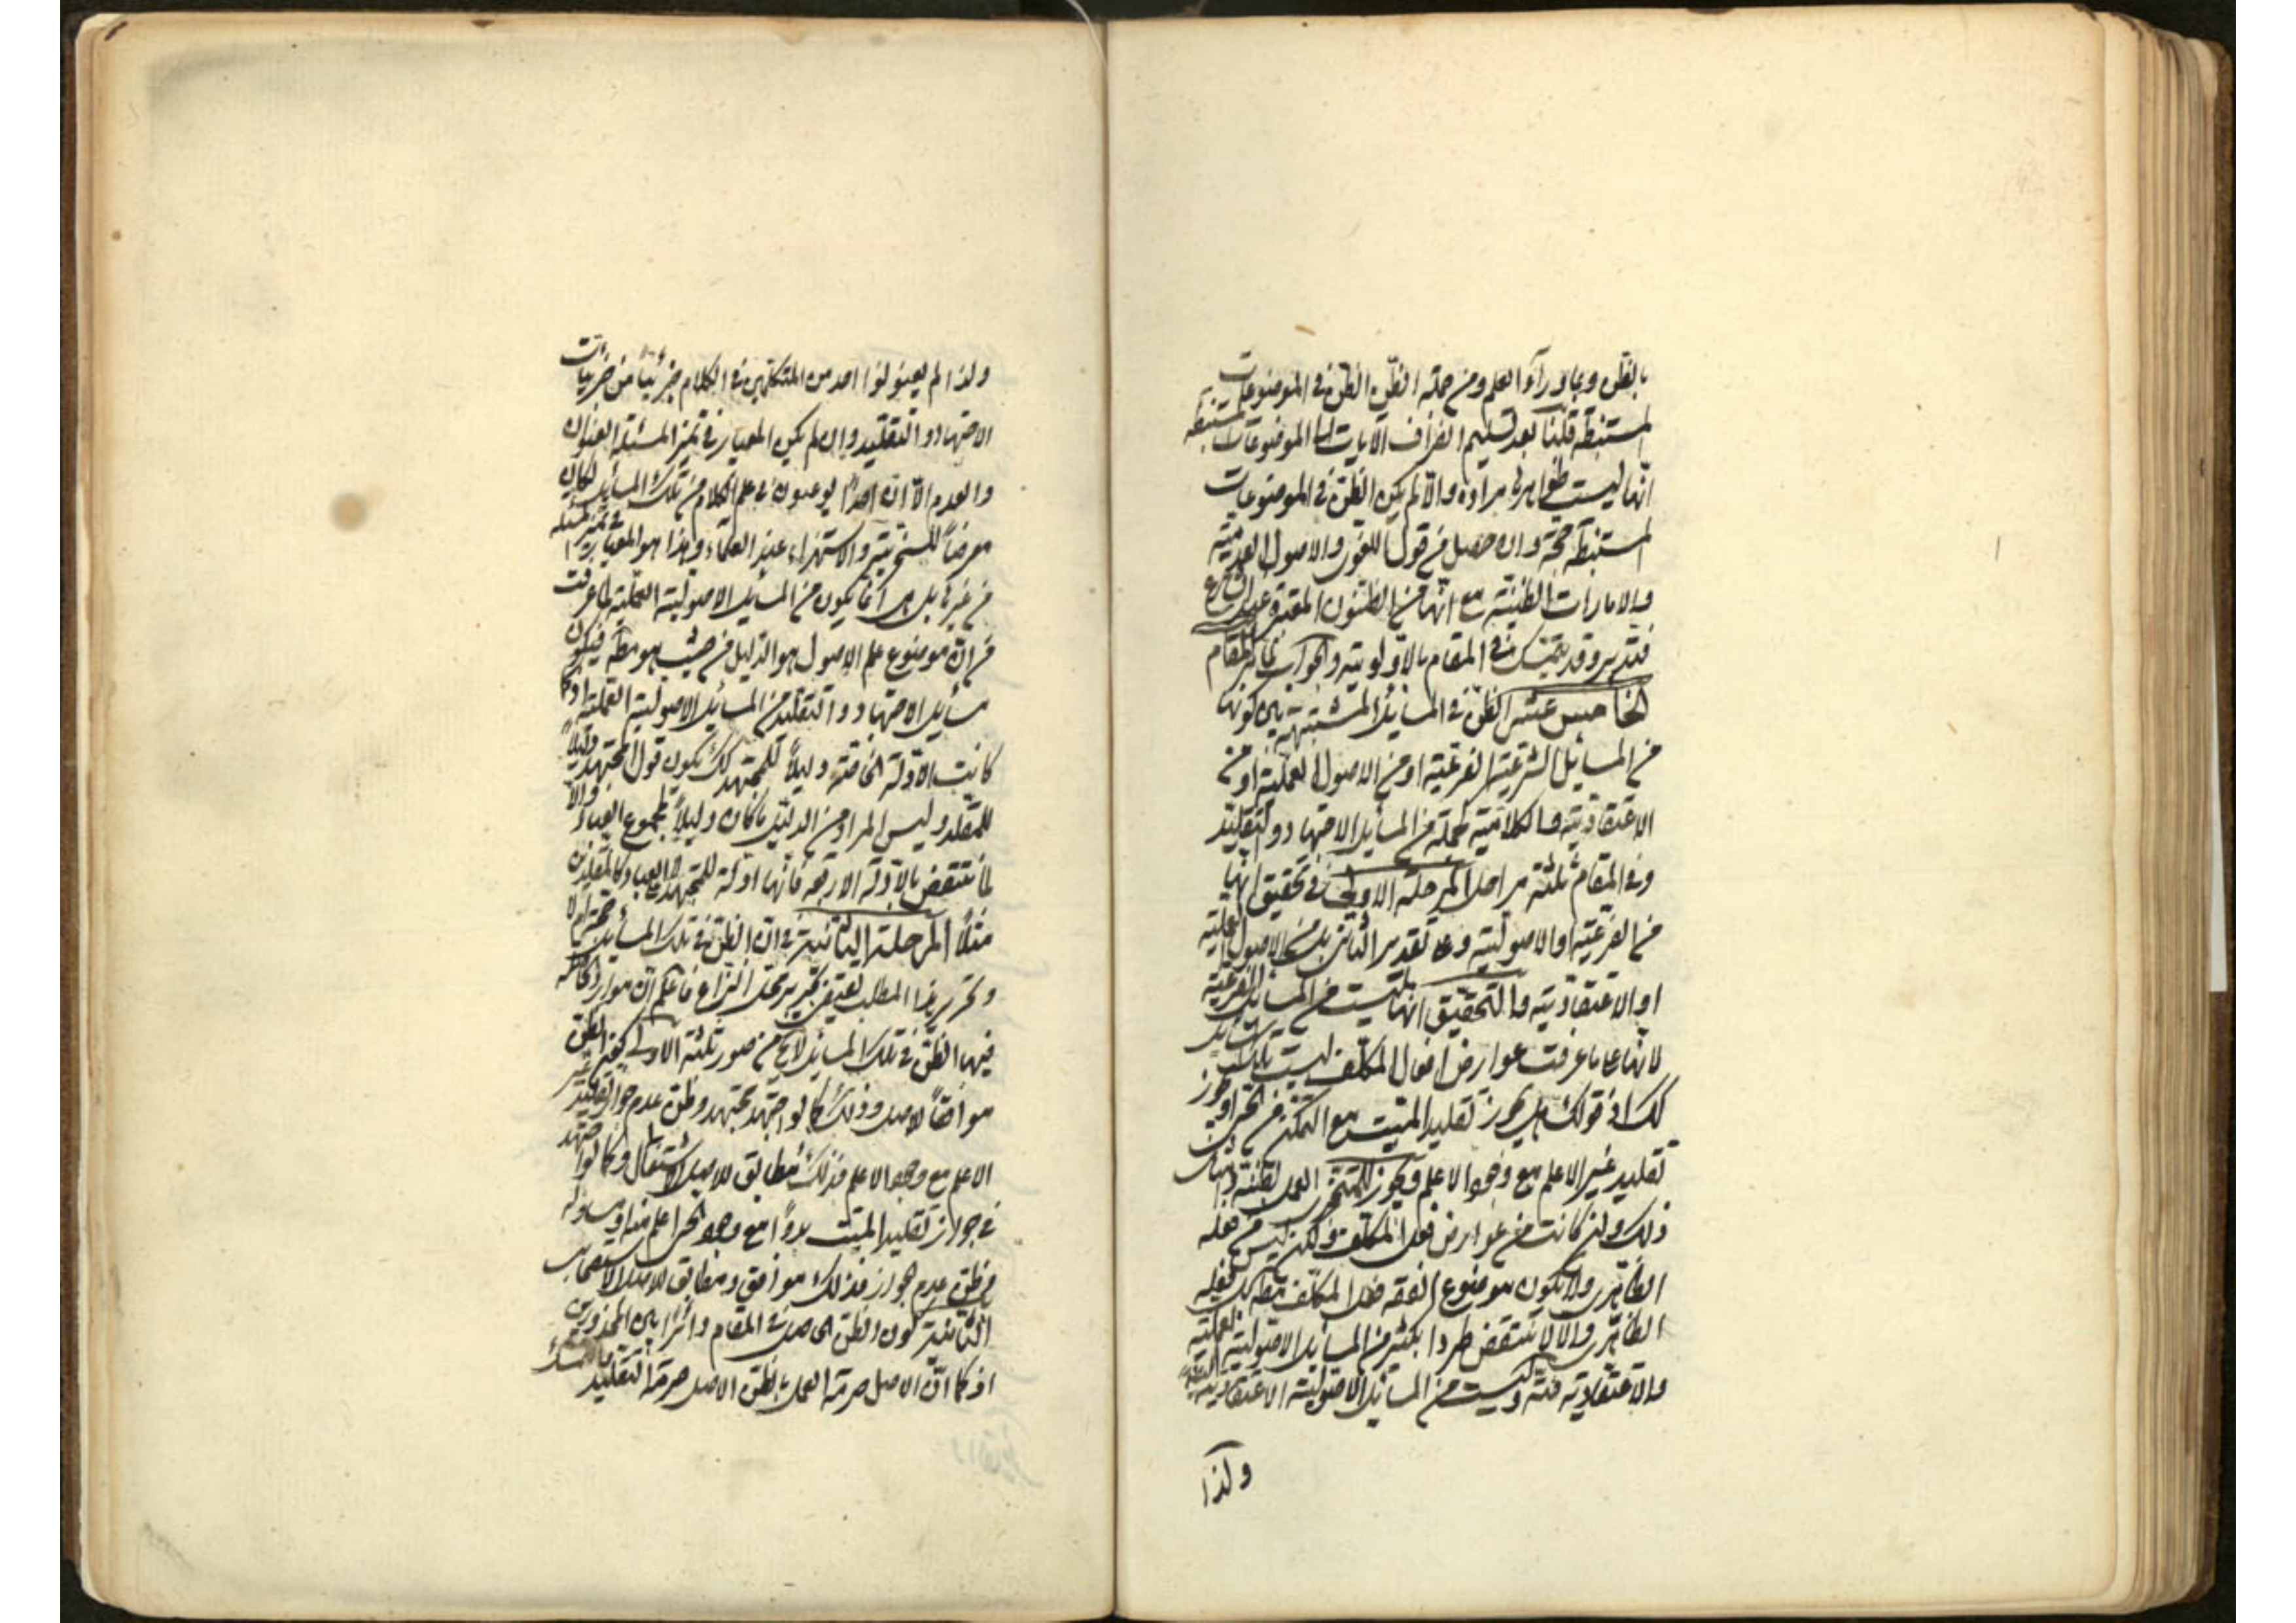 بالظن وبما وراء العلم ومن جملة الظن الظن في الموضوعات
المستنبطة قلنا بعد تسليم انصراف الآيات الى الموضوعات المستنبطة
انها ليست ظواهرها مرادة والا لم يكن الظن في الموضوعات
المستنبطة حجة وان حصل من قول اللغوى والاصول العدمية
والامارات الظنية مع انها من الظنون المعتبرة عند الشارع
فتدبر وقد يتمسك في المقام بالاولوية والجواب
الخامس عشر الظن في المسائل المشتبهة بين كونها
من المسائل الشرعية الفرعية او من الاصول العملية او من
الاعتقادية والكلامية كجملة من المسائل الاجتهاد والتقليد
وفي المقام ثلثة مراحل المرحلة الاولى في تحقيق انها
من الفرعية او الاصولية وعلى تقدير الثاني بل من الاصول العملية
او الاعتقادية والتحقيق انها ليست من المسائل الفرعية
لانها على ما عرفت عوارض افعال المكلف ليست تلك المسائل
كك اذ قولك هل يجوز تقليد الميت مع التمكن من الحى او يجوز
تقليد غير الاعلم مع وجود الاعلم ويجوز للمتجزى العمل بظنه وامثال
ذلك وان كانت من عوارض فعل المكلف ولكن ليس من فعله
الظاهرى ولا يكون موضوع الفقه فعل المكلف مط بل فعله
الظاهرى والا لانتقض طردا بكثير من المسائل الاصولية العملية
والاعتقادية فته وليست من المسائل الاصولية الاعتقادية
ولذا
ولذا لم يعنونوا احد من المتكلمين في الكلام جزئيا من جزئيات
الاجتهاد والتقليد وان لم يكن المعيار في تميز المسئلة العنوان
والعدم الا ان احدا لو عنون في علم الكلام من تلك المسائل لكان
معرضا للسخرية والاستهزاء عند العلماء وهذا هو المعيار في تميز المسئلة
من غيرها بل هى انما يكون من المسائل الاصولية العملية لما عرفت
من ان موضوع علم الاصول هو الدليل من حيث هو مط فيكون
مسائل الاجتهاد والتقليد من المسائل الاصولية العملية اذ كما
كانت الادلة الخاصة دليلا للمجتهد كك يكون قول المجتهد دليلا
للمقلد وليس المراد من الدليل ما كان دليلا لجميع العباد والا
لانتقض بالادلة الاربعة فانها ادلة للمجتهد لا العباد كالمقلدين
مثلا المرحلة الثانية في ان الظن في تلك المسائل حجة ام لا
وتحرير هذا المطلب يقتضى تحرير محل النزاع فاعلم ان موارد
فيها الظن في تلك المسائل لا يخ من صور ثلثة الاولى كون الظن
موافقا للاصل وذلك كما لو اجتهد مجتهد وظن عدم جواز تقليد غير
الاعلم مع وجود الاعلم فذلك مطابق للاصل الاشتغال وكما لو اجتهد
في جواز تقليد الميت بدوا مع وجود الحى اعلم منه او مساو له
فظن عدم جواز فذلك موافق ومطابق للاصل الاستصحاب
الثانية كون الظن الحاصل في المقام دائرا بين المحذورين
اذ كما ان الاصل حرمة العمل بالظن الاصل حرمة التقليد